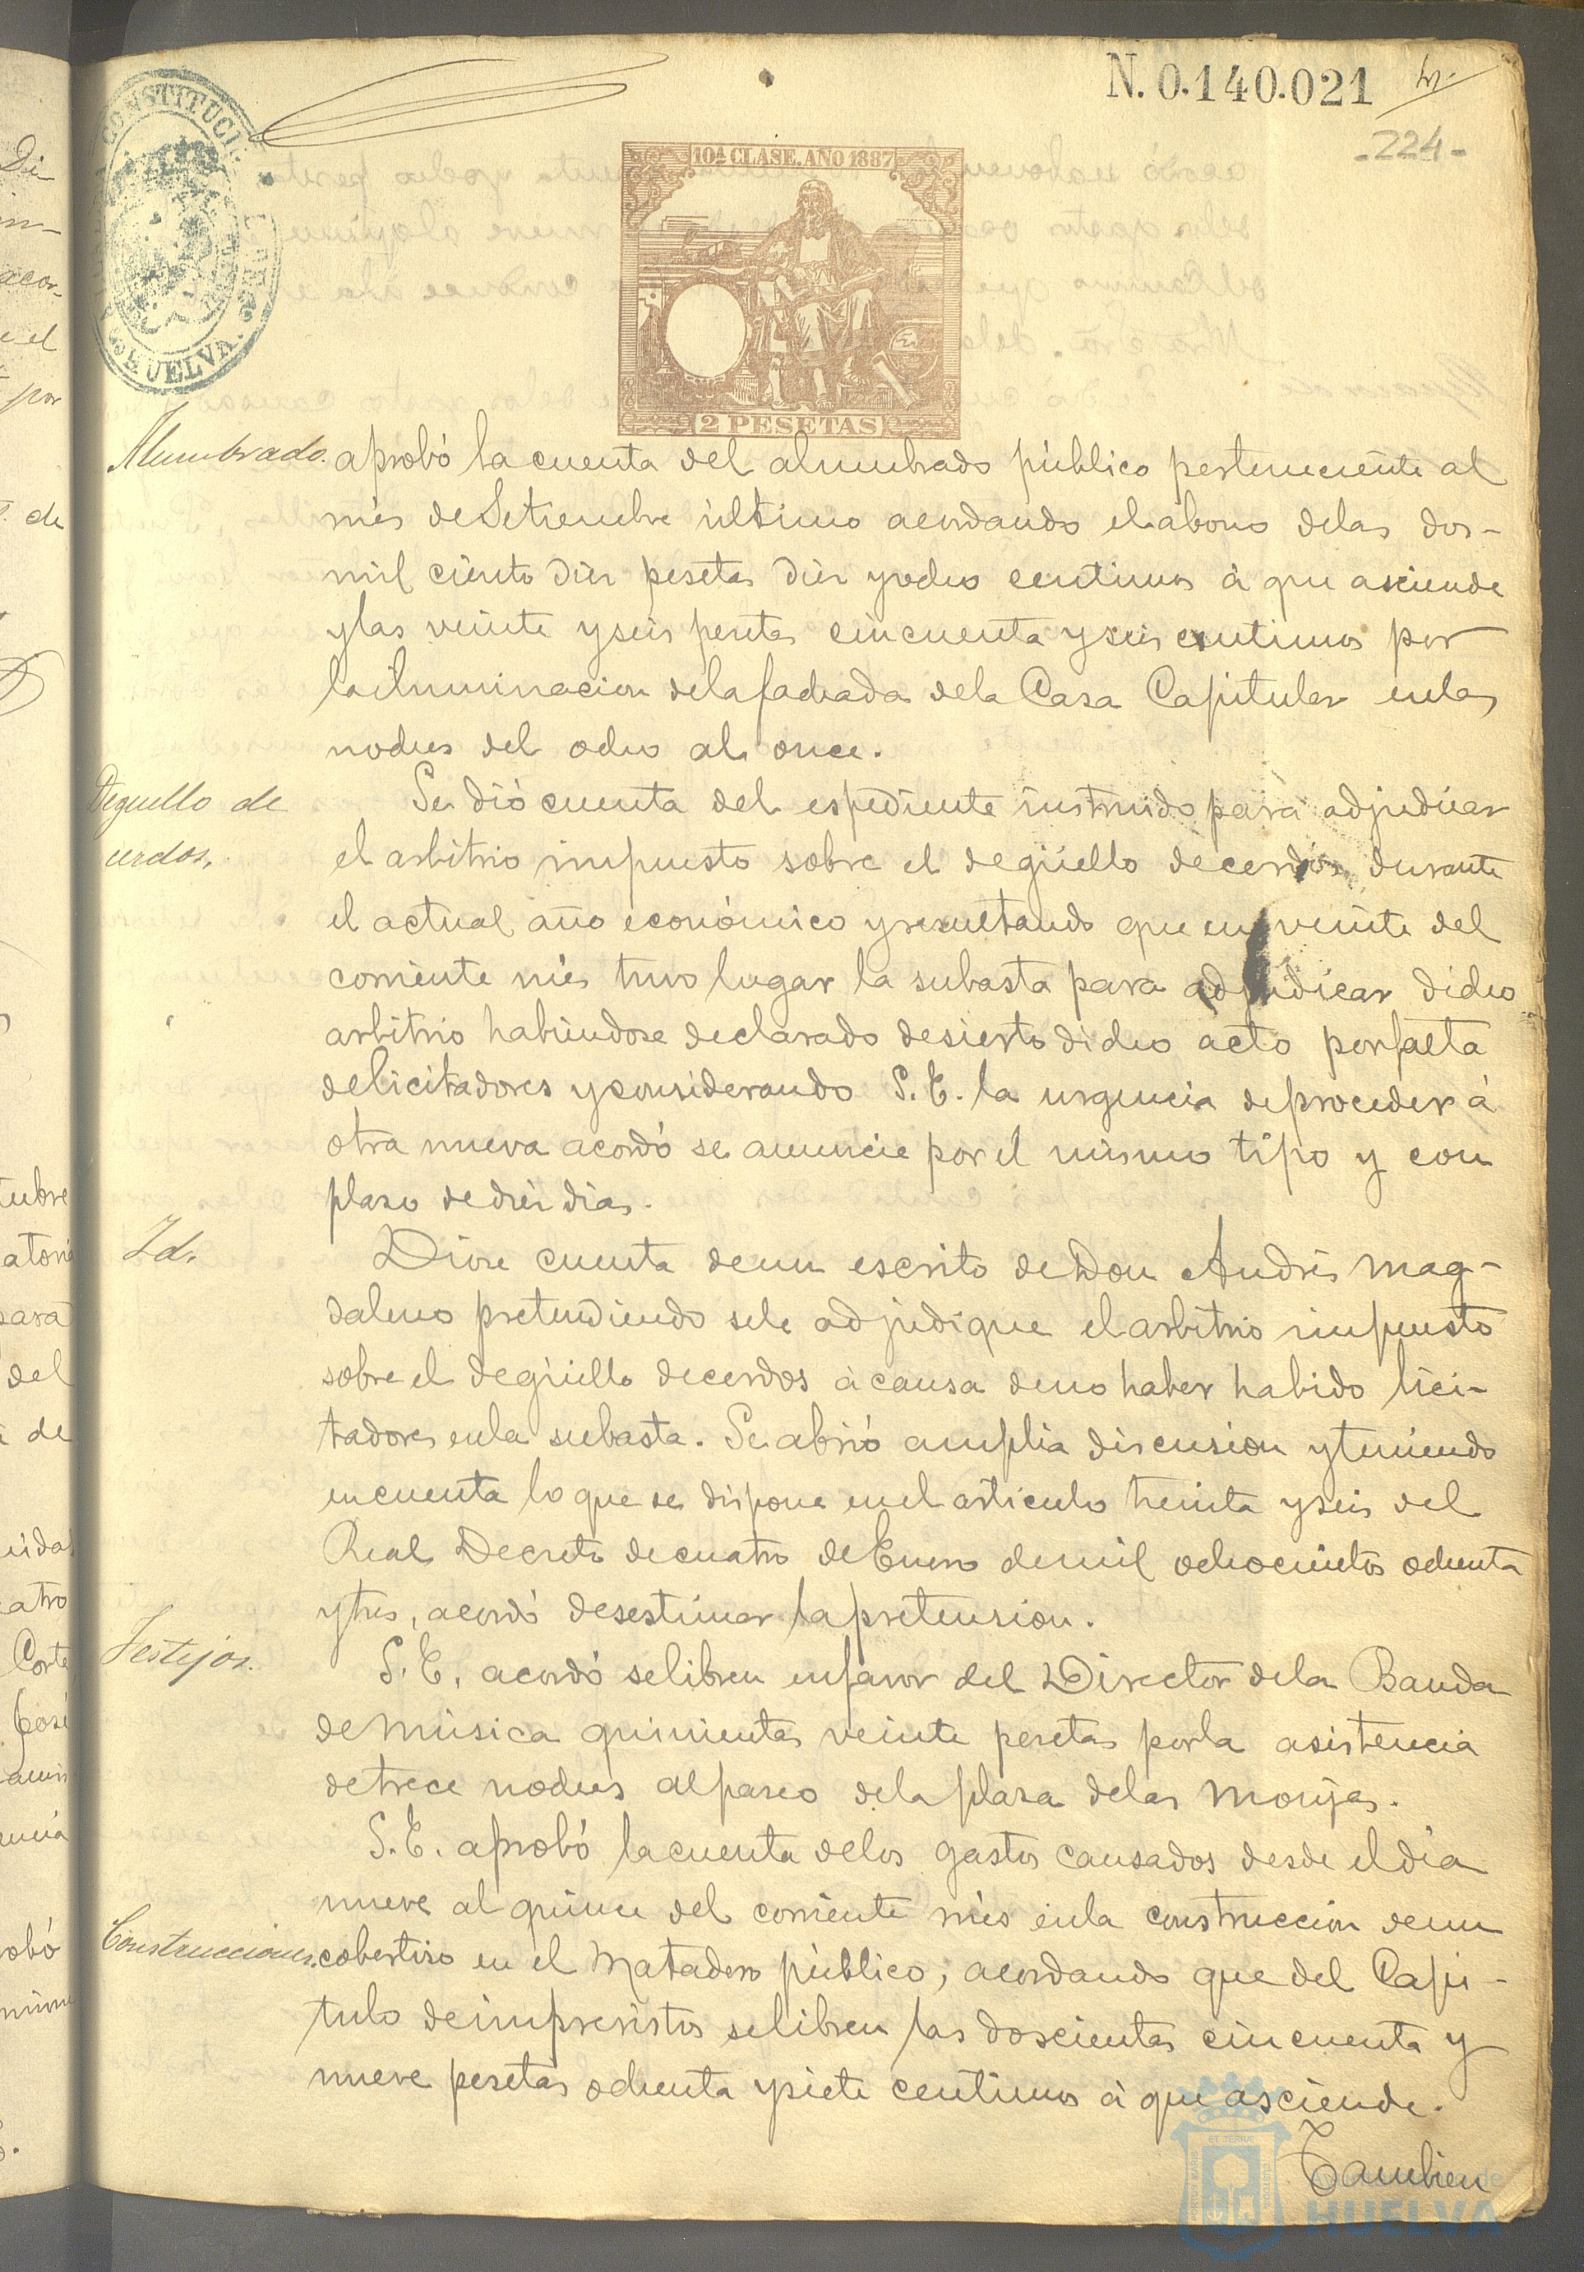 N. 0.140.021
-224-
CONSTITUCI
HUELVA.
10ª CLASE. AÑO 1887
2 PESETAS
Alumbrado. aprobó la cuenta del alumbrado público perteneciente al
mes de Setiembre último acordando el abono delas dos-
mil ciento diez pesetas diez y ocho centimos á que asciende
y las veinte y seis pesetas cincuenta y seis centimos por
la iluminacion dela fachada dela Casa Capitular enlas
noches del ocho al once.
Deguello de Se dió cuenta del espediente instruido para adjudicar
cerdos. el arbitrio impuesto sobre el degüello de cerdos durante
el actual año económico y resultando que en veinte del
corriente mes tuvo lugar la subasta para adjudicar dicho
arbitrio habiendose declarado desierto dicho acto por falta
de licitadores y considerando S. E. la urgencia de proceder á
otra nueva acordó se anuncie por el mismo tipo y con
plazo de diez dias.
Id. Diose cuenta de un escrito de Don Andrés Mag-
daleno pretendiendo se le adjudique el arbitrio impuesto
sobre el degüello de cerdos á causa de no haber habido lici-
tadores enla subasta. Se abrió amplia discusion y teniendo
en cuenta lo que se dispone en el articulo treinta y seis del
Real Decreto de cuatro de Enero de mil ochocientos ochenta
y tres, acordó desestimar la pretension.
Festejos. S. E. acordó se libren en favor del Director dela Banda
de Música quinientas veinte pesetas por la asistencia
de trece noches al paseo dela plaza delas Monjas.
S. E. aprobó la cuenta delos gastos causados desde el dia
nueve al quince del corriente mes en la construccion de un
Construcciones. cobertizo en el Matadero público; acordando que del Capi-
tulo de imprevistos se libren las doscientas cincuenta y
nueve pesetas ochenta y siete centimos á que asciende.
Tambien
HUELVA